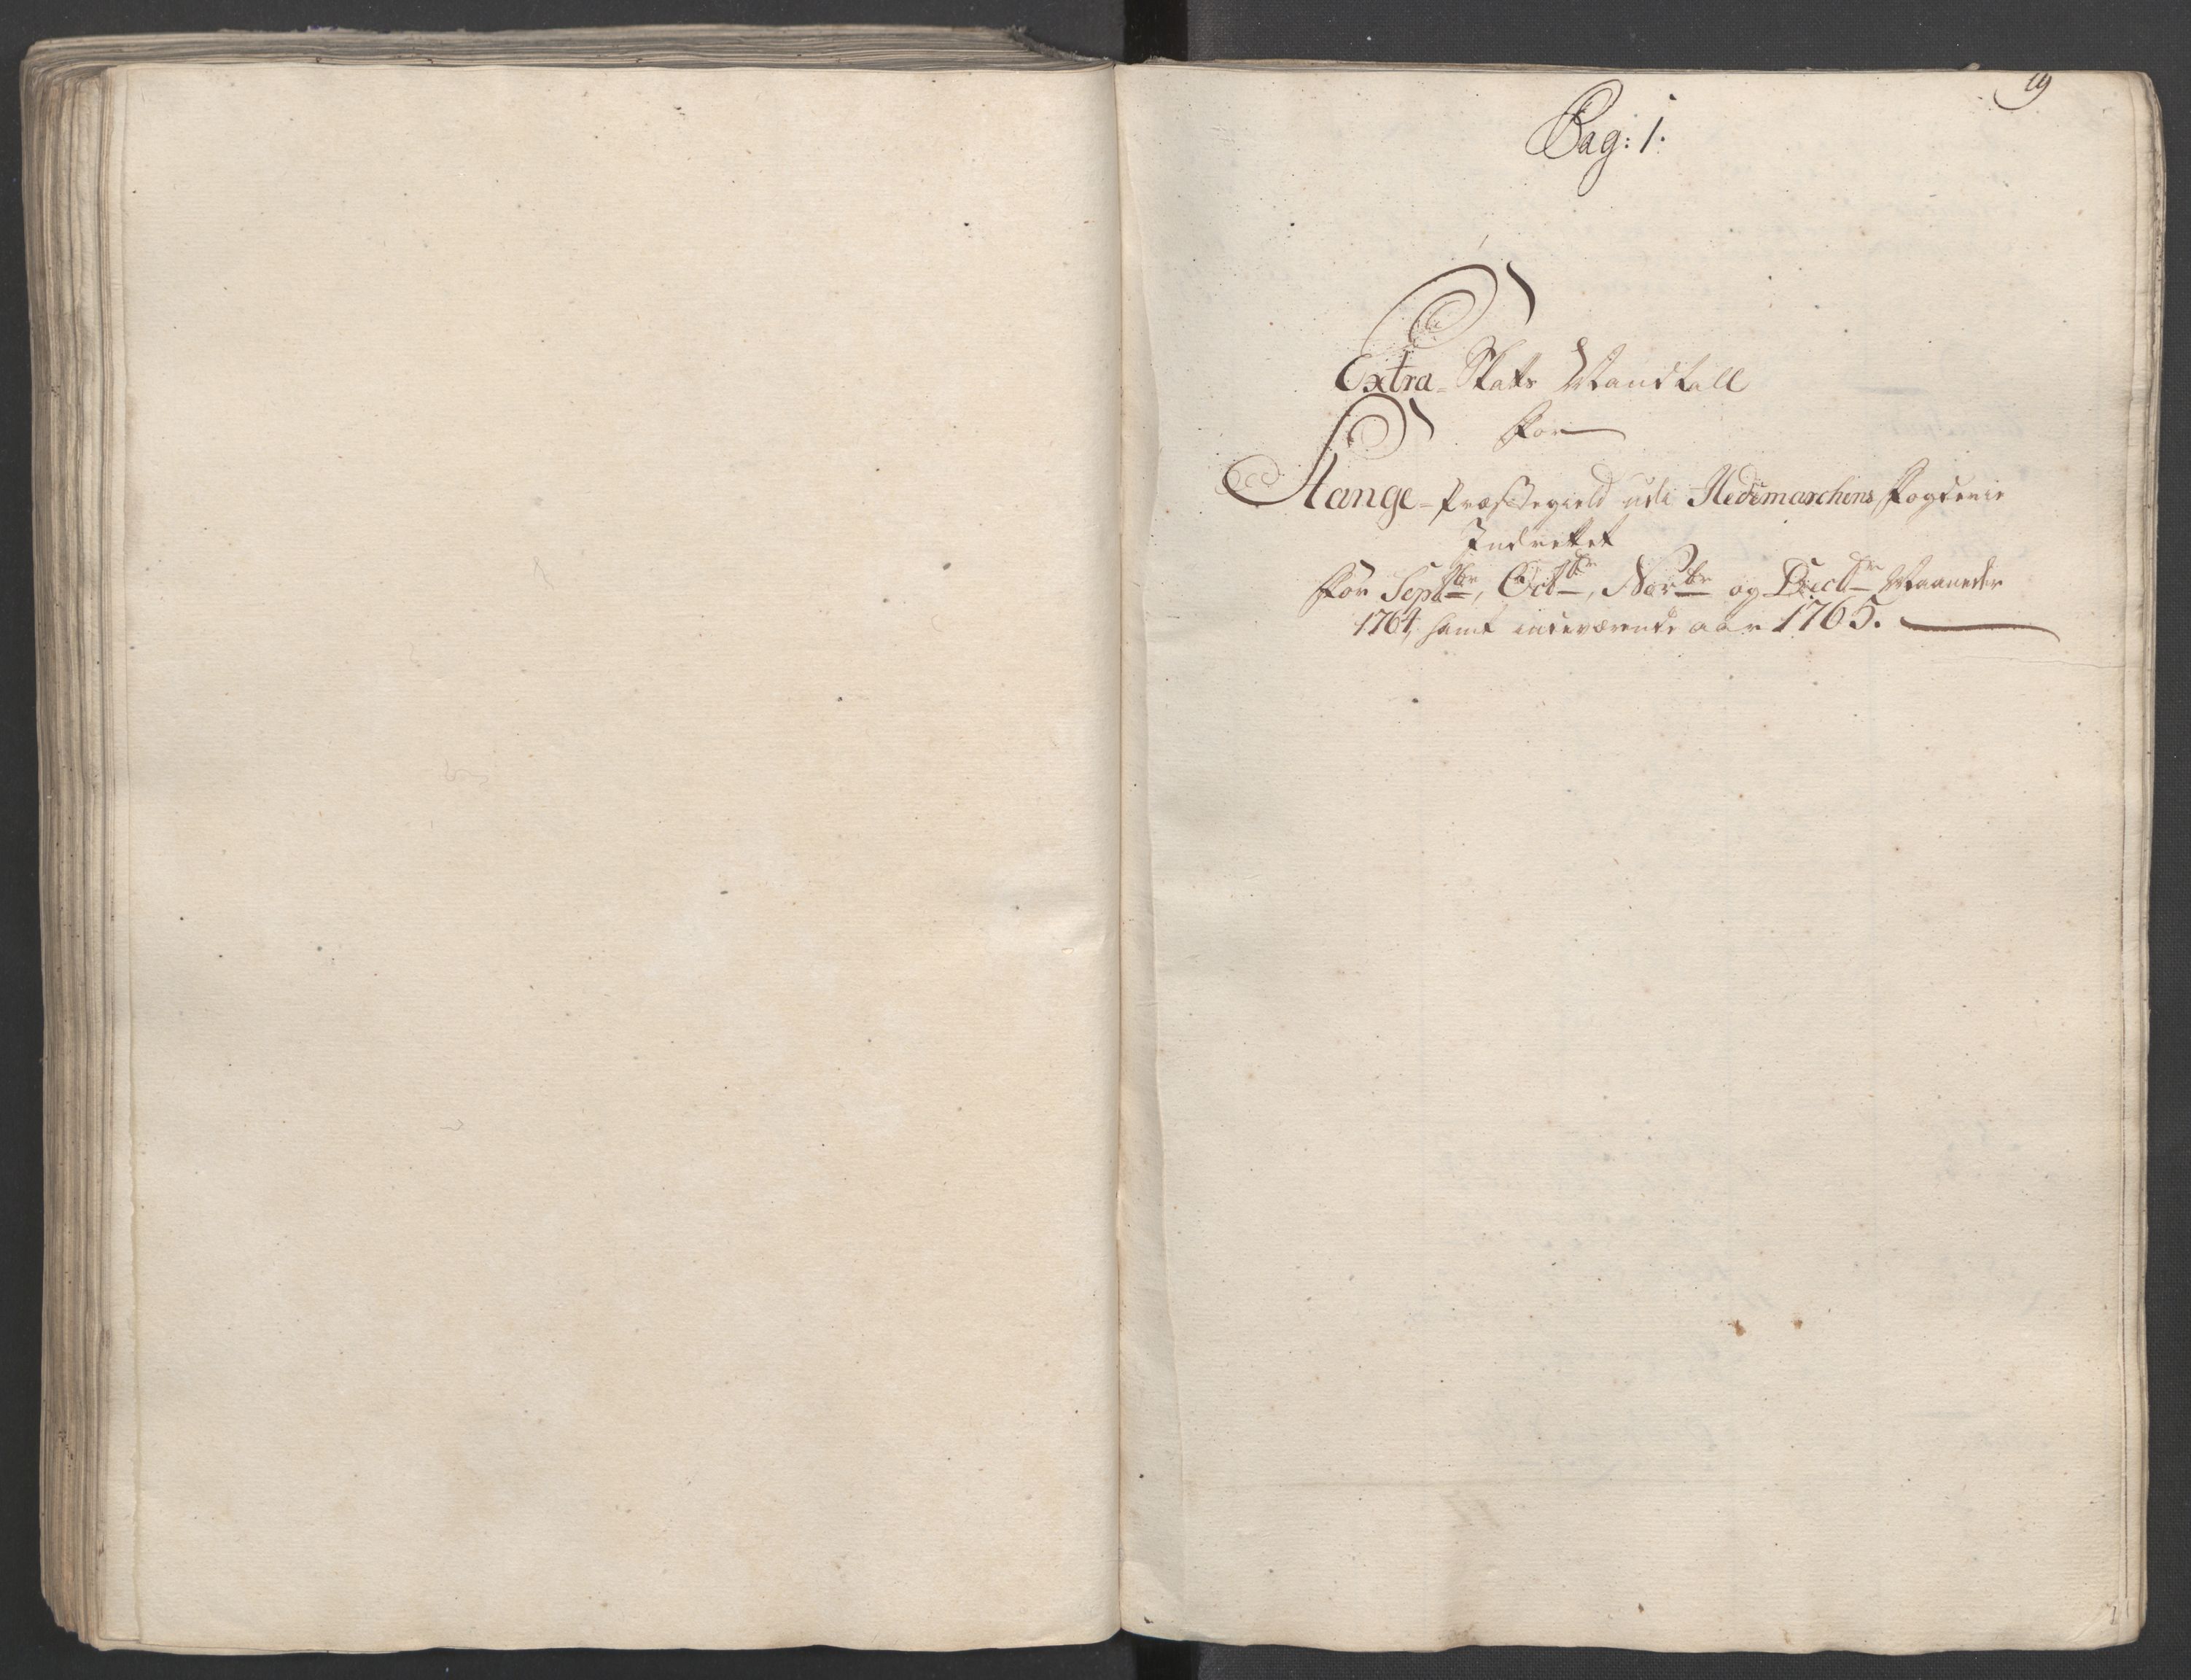 19
Pag: 1.
Extra-Skatts Mandtall
for
Stange-Præstegield udi Hedemarchens Fogderie
Indrettet
for Septbr, Octbr, Novbr og Decbr Maaneder
1764, samt indeværende aar 1765.